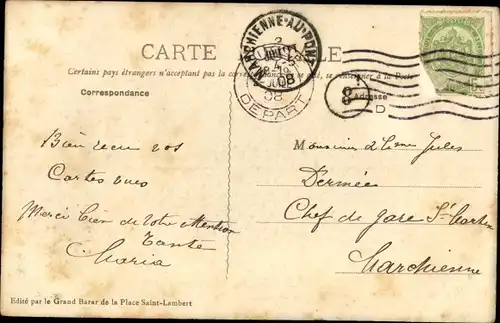 CARTE
Certains pays étrangers n'acceptant pas la correspondance se renseigner à la Poste
Correspondance
MARCHIENNE-AU-PONT
08
DEPART
8
Adresse
D
Bien reçu vos
Cartes vues
Merci bien de votre attention
Tante
Maria
Monsieur et Mme Jules
Dermée
Chef de gare St Martin
Marchienne
Edité par le Grand Bazar de la Place Saint-Lambert